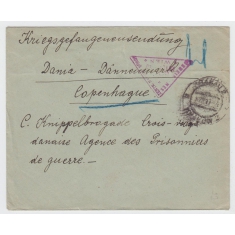 Kriegsgefangenensendung
Dania - Dännemark
Copenhague
C. Knippelbrogade Croix-rouge
danoise Agence des Prisonniers
de guerre —